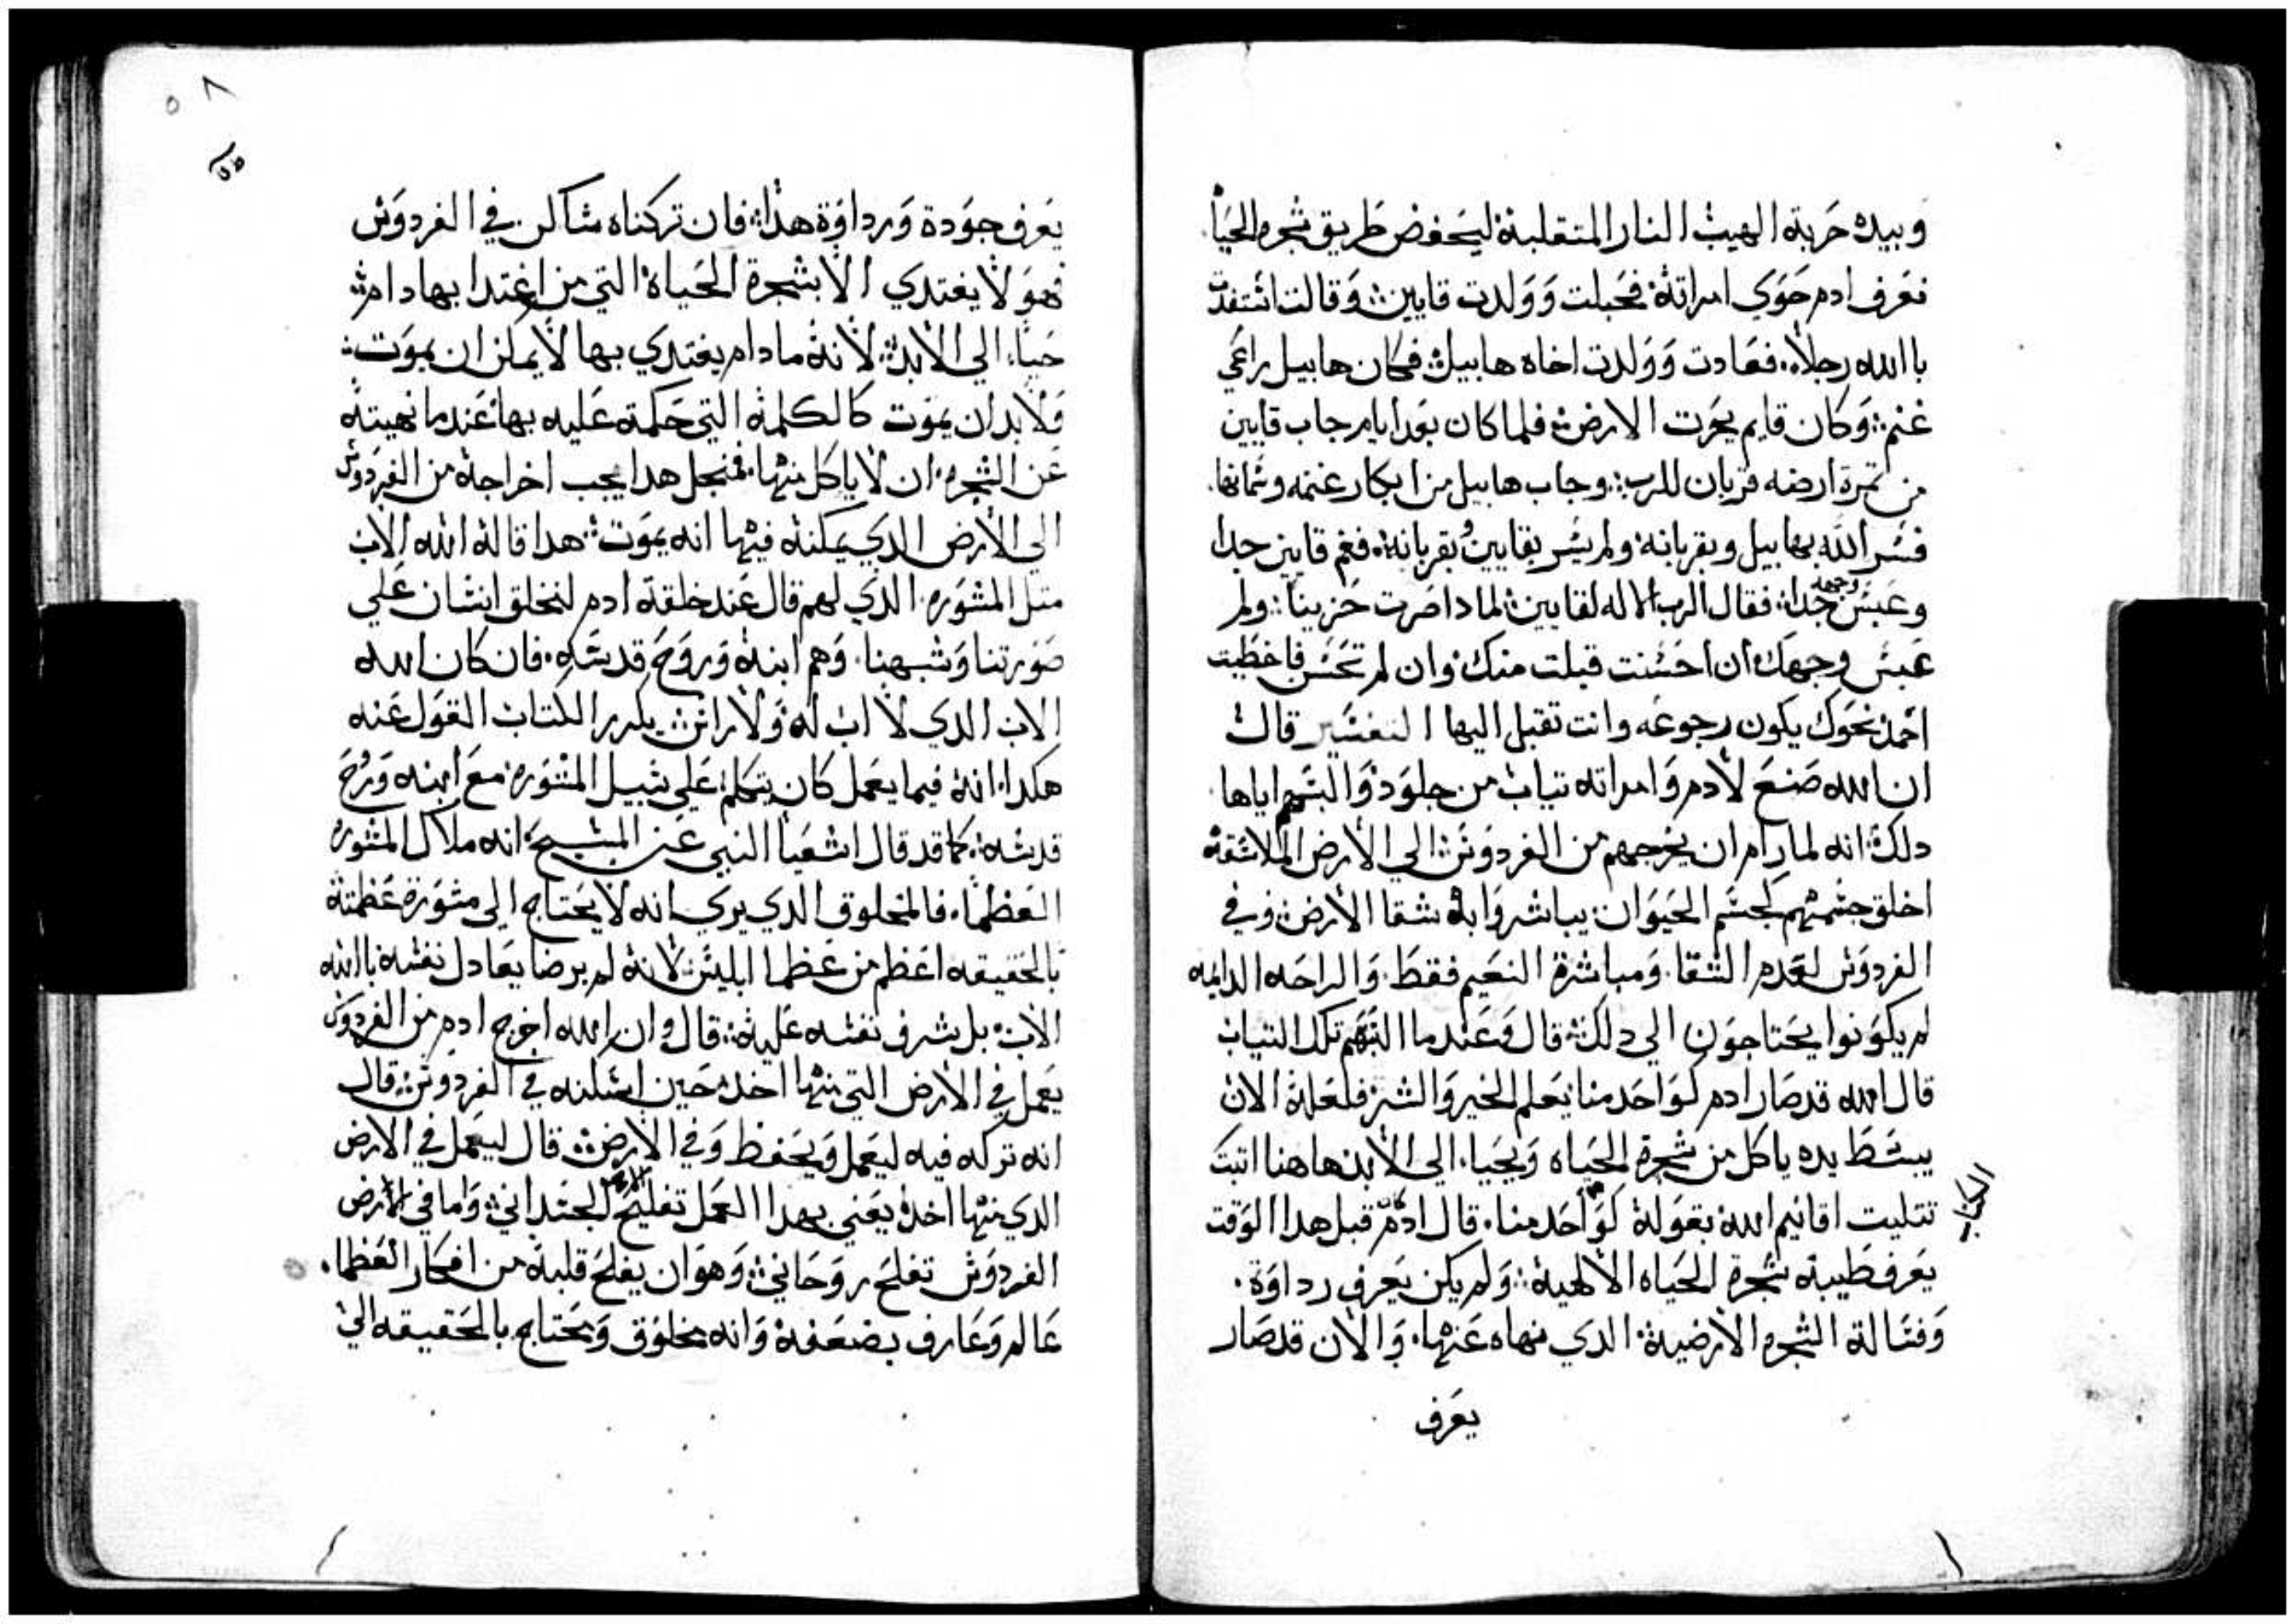 وبيده حربة الهيب النار المتقلبة ليحفض طريق شجره الحياه
فعرف ادم حوي امراته فحبلت وولدت قايين وقالت استفدت
باالله رجلا. فعادت وولدت اخاه هابيل فكان هابيل راعي
غنم وكان قايم يحرت الارض فلما كان بعد ايام جاب قايين
من تمرة ارضه قربان للرب وجاب هابيل من ابكار غنمه وسمانها
فسر الله بهابيل وبقربانه ولم يسر بقايين وبقربانه فغم قايين جدا
وعبس وجهه جدا فقال الرب الاله لقايين لمادا صرت حزينا ولم
عبس وجهك ان احسنت قبلت منك وان لم تحسن فاخطيت
اخمد نحوك يكون رجوعه وانت تقبل اليها التفسير قال
ان الله صنع لادم وامراته تياب من جلود والبسهم اياها
دلك انه لما رام ان يخرجهم من الفردوس الي الارض الملاشقة
اخلق جسمهم كجسم الحيوان يباشروا به شقا الارض وفي
الفردوس لعدم الشقا ومباشرة النعيم فقط والراحه الدايمه
لم يكونوا يحتاجون الي دلك قال وعندما البسهم تلك التياب
قال الله قد صار ادم كواحد منا يعلم الخير والشر فلعله الان
يبسط يده ياكل من شجرة الحياه ويحيا الي الابد هاهنا اتبت
الكتاب
تتليت اقانيم الله بقوله كواحد منا. قال ادم قبل هدا الوقت
يعرف طيبة شجرة الحياه الالهية ولم يكن يعرف رداوة
وفسالة الشجره الارضية الدي نهاه عنها. والان قد صار
يعرف
٥٨
يعرف جودة ورداوة هدا فان تركناه ساكن في الفردوس
فهو لا يغتدي الا بشجرة الحياة التي من اغتدا بها دام
حيا الي الابد لانه مادام يغتدي بها لا يمكن ان يموت
ولابد ان يموت كالكلمة التي حكمت عليه بها عندما نهيته
عن الشجره ان لا ياكل منها فمنجل هدا يجب اخراجه من الفردوس
الي الارض الدي يمكنه فيها انه يموت هدا قاله الله الاب
متل المشوره الدي لهم قال عند خلقة ادم لنخلق انسان علي
صورتنا وشبهنا وهم ابنه وروح قدسه. فان كان الله
الاب الدي لا اب له ولا راس يكرر الكتاب القول عنه
هكدا انه فيما يعمل كان يتكلم علي سبيل المشوره مع ابنه وروح
قدسه كما قد قال اشعيا النبي عن المسيح انه ملاك المشوره
العظما. فالمخلوق الدي يري انه لا يحتاج الي مشورة عظمته
بالحقيقه اعظم من عظما ابليس لانه لم يرضا يعادل نفسه باالله
الاب بل شرف نفسه عليه قال وان الله اخرج ادم من الفردوس
يعمل في الارض التي منها اخد حين اسكنه في الفردوس قال
انه تركه فيه ليعمل ويحفظ وفي الارض قال ليعمل في الارض
الدي منها اخد يعني بهدا العمل تفليح الجسداني واما في
الفردوس تفلح روحاني وهو ان يفلح قلبه من افكار العظما.
عالم وعارف بضعفه وانه مخلوق ومحتاج بالحقيقه الي